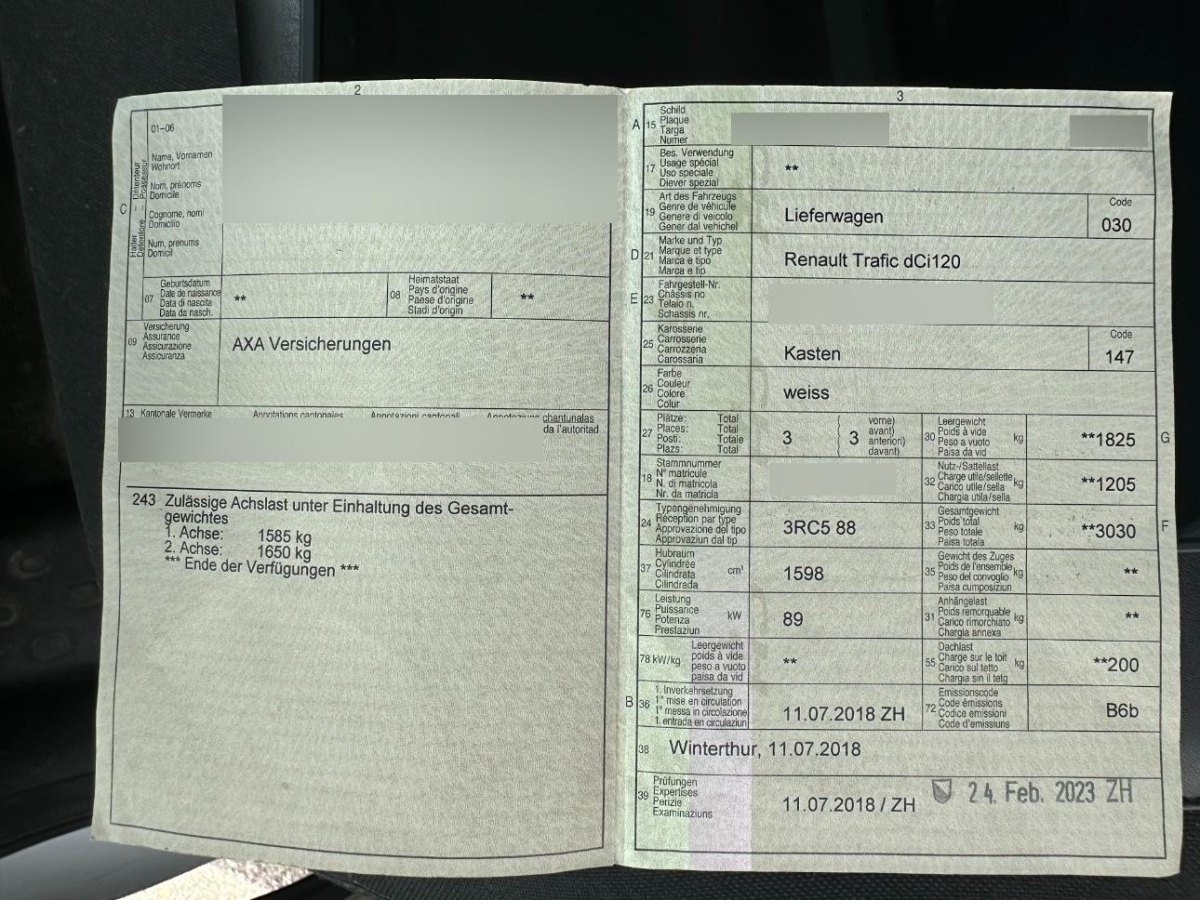 2
01-06
C
Halter – Détenteur
Detentore – Possessur
Name, Vornamen
Wohnort
Nom, prénoms
Domicile
Cognome, nomi
Domicilio
Num, prenums
Domicil
07
Geburtsdatum
Date de naissance
Data di nascita
Data da nasch.
**
08
Heimatstaat
Pays d'origine
Paese d'origine
Stadi d'origin
**
09
Versicherung
Assurance
Assicurazione
Assicuranza
AXA Versicherungen
13 Kantonale Vermerke Annotations cantonales Annotazioni cantonali Annotaziuns chantunalas
da l'autoritad
243 Zulässige Achslast unter Einhaltung des Gesamt-
gewichtes
1. Achse: 1585 kg
2. Achse: 1650 kg
*** Ende der Verfügungen ***
3
A 15
Schild
Plaque
Targa
Numer
17
Bes. Verwendung
Usage spécial
Uso speciale
Diever spezial
**
19
Art des Fahrzeugs
Genre de véhicule
Genere di veicolo
Gener dal vehichel
Lieferwagen
Code
030
D 21
Marke und Typ
Marque et type
Marca e tipo
Marca e tip
Renault Trafic dCi120
E 23
Fahrgestell-Nr.
Châssis no
Telaio n.
Schassis nr.
25
Karosserie
Carrosserie
Carrozzeria
Carossaria
Kasten
Code
147
26
Farbe
Couleur
Colore
Colur
weiss
27
Plätze: Total
Places: Total
Posti: Totale
Plazs: Total
3
3
vorne)
avant)
anteriori)
davant)
30
Leergewicht
Poids à vide
Peso a vuoto
Paisa da vid
kg
**1825
G
18
Stammnummer
N° matricule
N. di matricola
Nr. da matricla
32
Nutz-/Sattellast
Charge utile/sellette
Carico utile/sella
Chargia utila/sella
kg
**1205
24
Typengenehmigung
Réception par type
Approvazione del tipo
Approvaziun dal tip
3RC5 88
33
Gesamtgewicht
Poids total
Peso totale
Paisa totala
kg
**3030
F
37
Hubraum
Cylindrée
Cilindrata
Cilindrada
cm³
1598
35
Gewicht des Zuges
Poids de l'ensemble
Peso del convoglio
Paisa cumposiziun
kg
**
76
Leistung
Puissance
Potenza
Prestaziun
kW
89
31
Anhängelast
Poids remorquable
Carico rimorchiato
Chargia annexa
kg
**
78 kW/kg
Leergewicht
poids à vide
peso a vuoto
paisa da vid
**
55
Dachlast
Charge sur le toit
Carico sul tetto
Chargia sin il tetg
kg
**200
B 36
1. Inverkehrsetzung
1re mise en circulation
1a messa in circolazione
1. entrada en circulaziun
11.07.2018 ZH
72
Emissionscode
Code émissions
Codice emissioni
Code d'emissiuns
B6b
38
Winterthur, 11.07.2018
39
Prüfungen
Expertises
Perizie
Examinaziuns
11.07.2018 / ZH
24. Feb. 2023 ZH